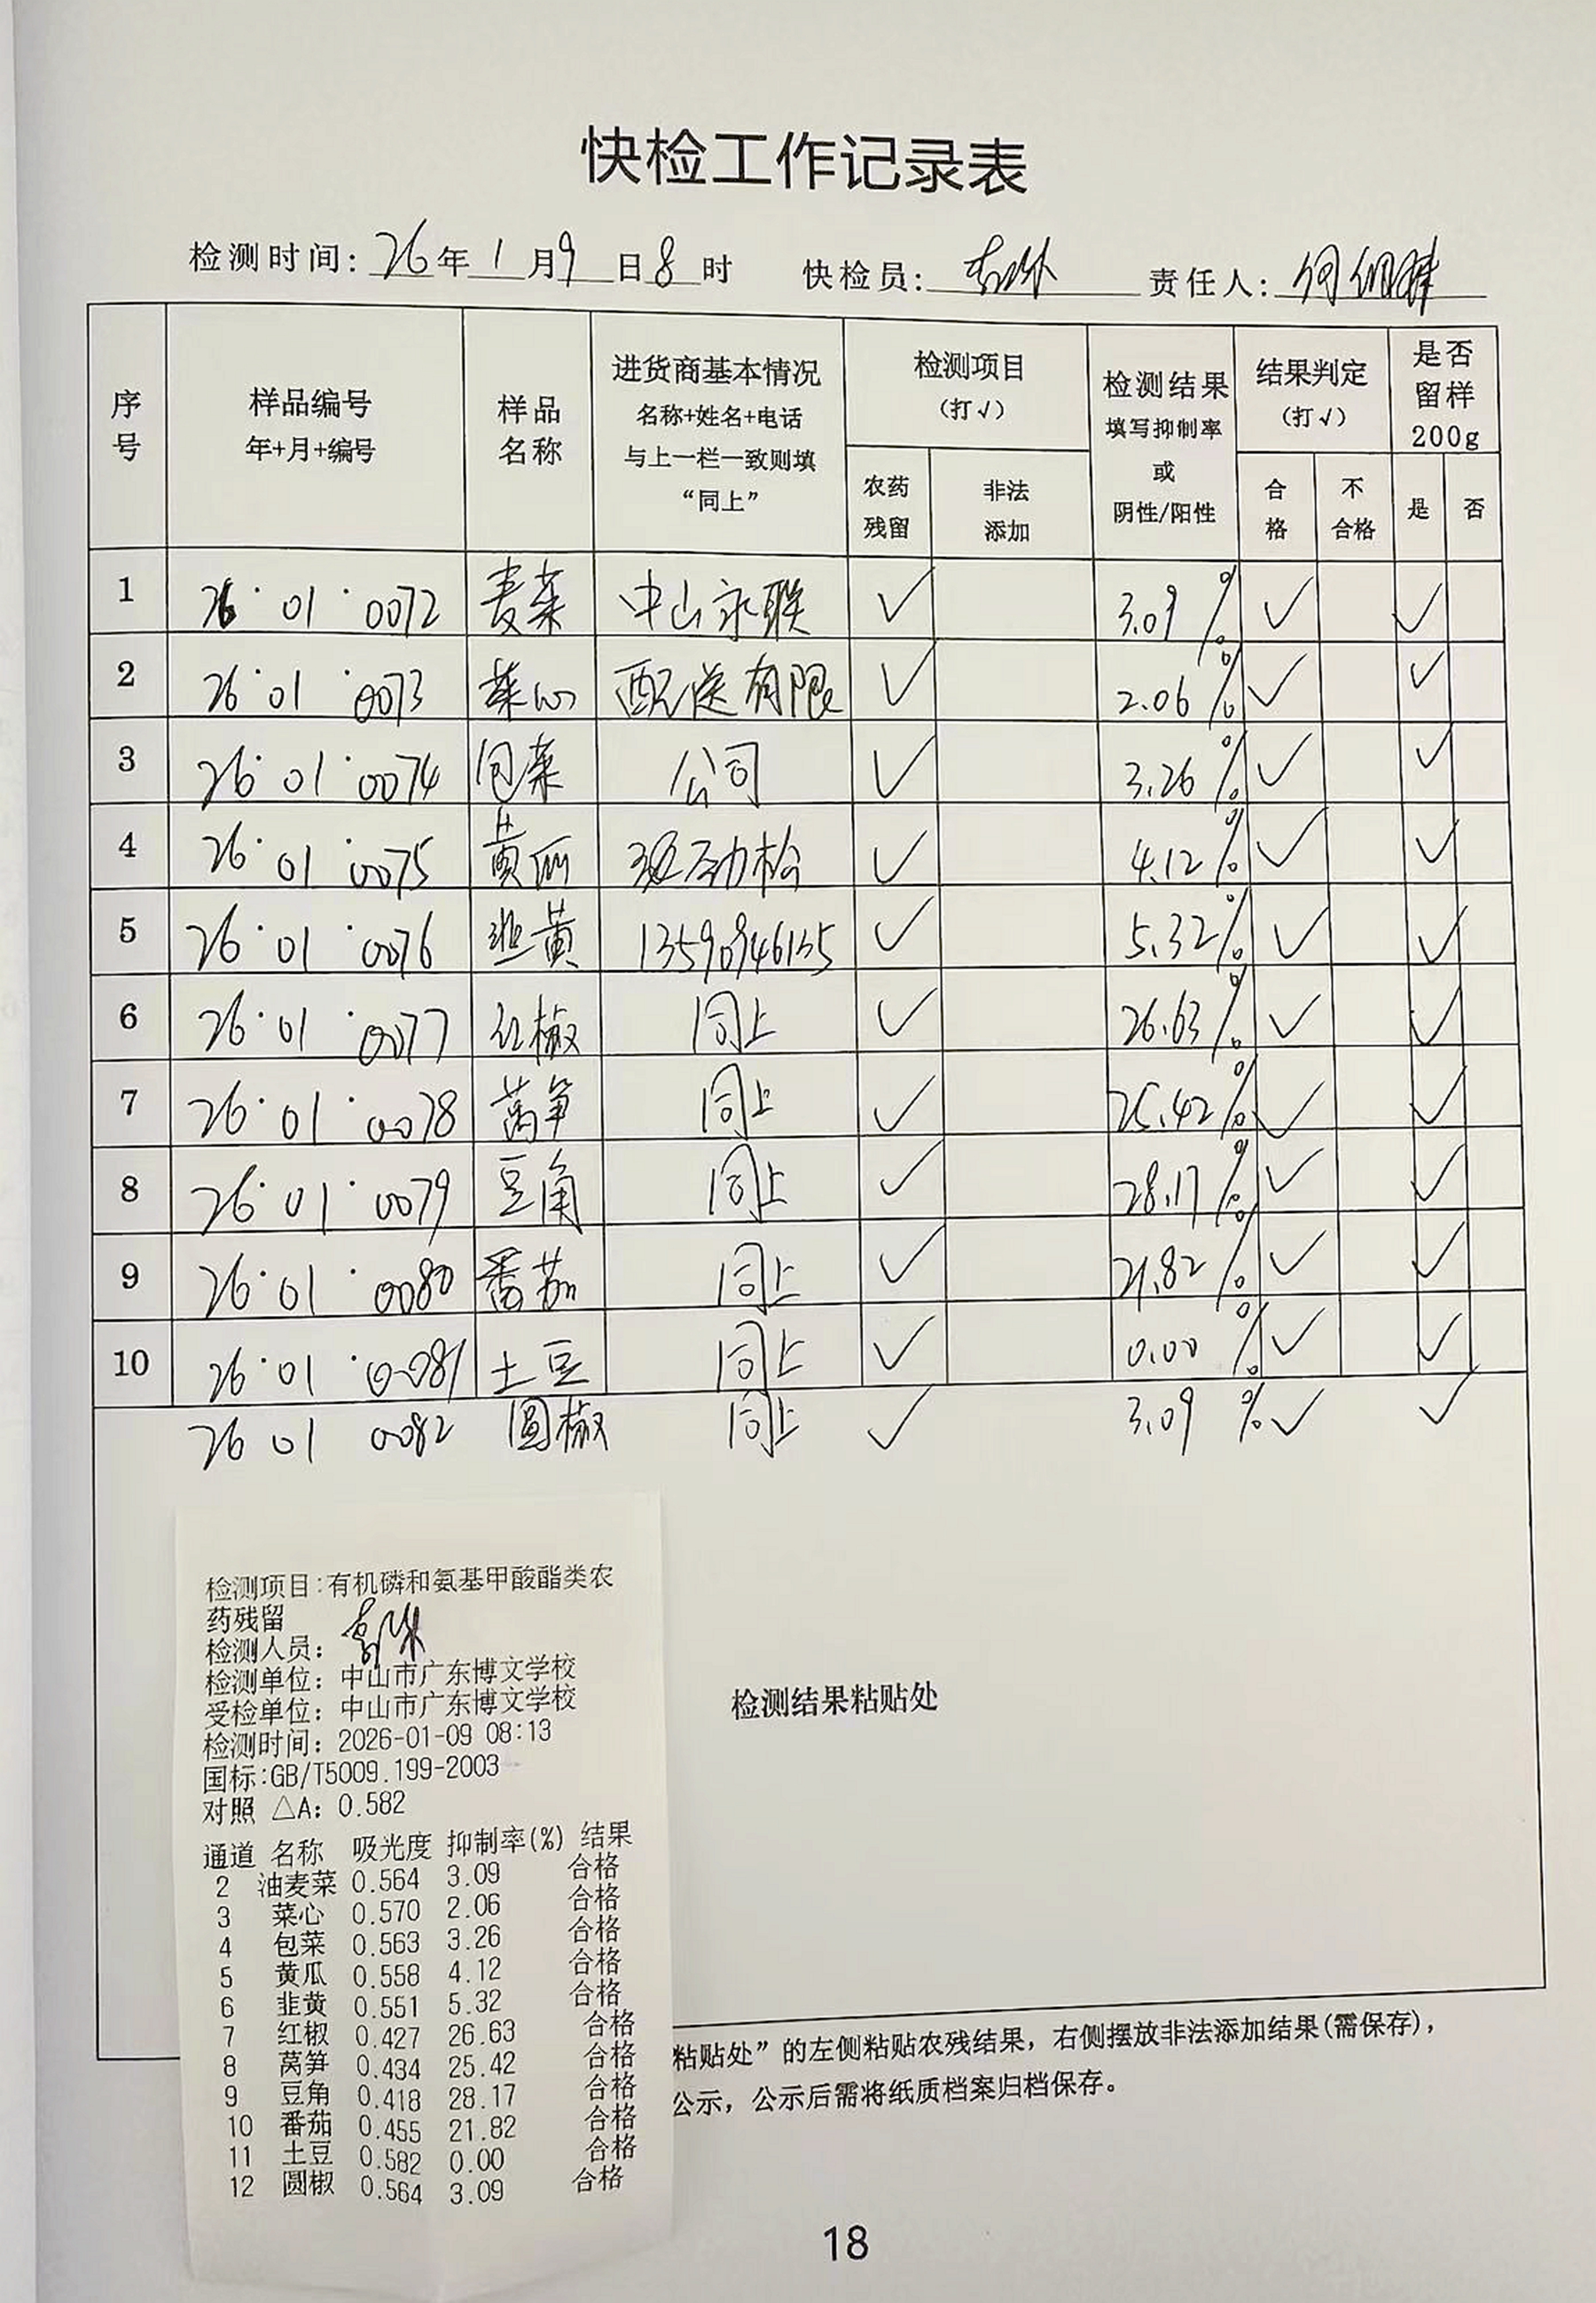 快检工作记录表
检测时间: 26年1月9日8时 快检员: 责任人:
序号 样品编号 年+月+编号 样品名称 进货商基本情况 名称+姓名+电话 与上一栏一致则填“同上” 检测项目(打√) 农药残留 非法添加 检测结果 填写抑制率或阴性/阳性 结果判定(打√) 合格 不合格 是否留样200g 是 否
1 26·01·0072 麦菜 中山永联 ✓ 3.09% ✓ ✓
2 26·01·0073 菜心 配送有限 ✓ 2.06% ✓ ✓
3 26·01·0074 包菜 公司 ✓ 3.26% ✓ ✓
4 26·01·0075 黄瓜 劲松 ✓ 4.12% ✓ ✓
5 26·01·0076 韭黄 13590946135 ✓ 5.32% ✓ ✓
6 26·01·0077 红椒 同上 ✓ 26.63% ✓ ✓
7 26·01·0078 莴笋 同上 ✓ 25.42% ✓ ✓
8 26·01·0079 豆角 同上 ✓ 28.17% ✓ ✓
9 26·01·0080 番茄 同上 ✓ 21.82% ✓ ✓
10 26·01·0081 土豆 同上 ✓ 0.00% ✓ ✓
26 01 0082 圆椒 同上 ✓ 3.09% ✓ ✓
检测结果粘贴处
检测项目:有机磷和氨基甲酸酯类农
药残留
检测人员:
检测单位: 中山市广东博文学校
受检单位: 中山市广东博文学校
检测时间: 2026-01-09 08:13
国标:GB/T5009.199-2003
对照 △A: 0.582
通道 名称 吸光度 抑制率(%) 结果
2 油麦菜 0.564 3.09 合格
3 菜心 0.570 2.06 合格
4 包菜 0.563 3.26 合格
5 黄瓜 0.558 4.12 合格
6 韭黄 0.551 5.32 合格
7 红椒 0.427 26.63 合格
8 莴笋 0.434 25.42 合格
9 豆角 0.418 28.17 合格
10 番茄 0.455 21.82 合格
11 土豆 0.582 0.00 合格
12 圆椒 0.564 3.09 合格
粘贴处”的左侧粘贴农残结果，右侧摆放非法添加结果(需保存)，
公示，公示后需将纸质档案归档保存。
18